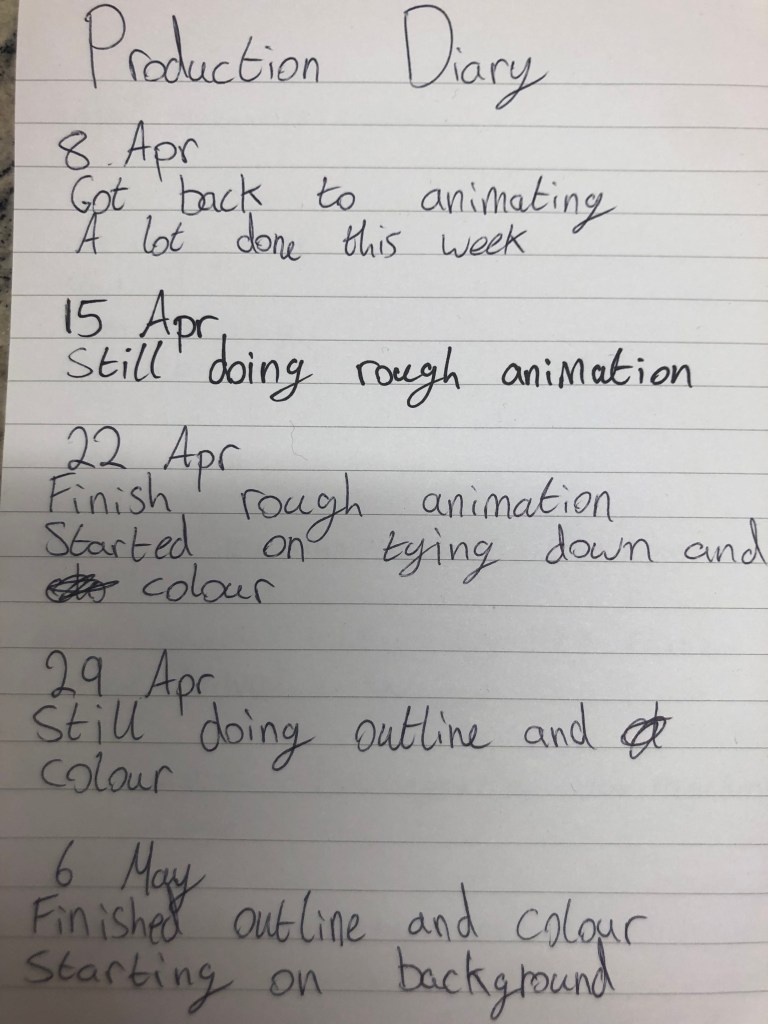 Production Diary
8 Apr
Got back to animating
A lot done this week
15 Apr
Still doing rough animation
22 Apr
Finish rough animation
Started on tying down and
colour
29 Apr
Still doing outline and
colour
6 May
Finished outline and colour
Starting on background